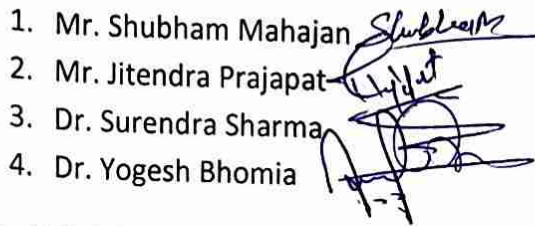 1. Mr. Shubham Mahajan ShubhamM
2. Mr. Jitendra Prajapat
3. Dr. Surendra Sharma
4. Dr. Yogesh Bhomia